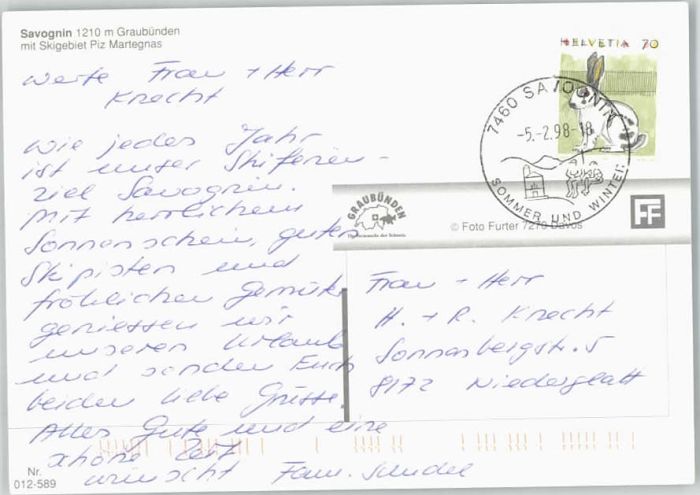 Savognin 1210 m Graubünden
mit Skigebiet Piz Martegnas
Werte Frau + Herr
Knecht
Wie jedes Jahr
ist unser Skiferien-
ziel Savognin.
Mit herrlichem
Sonnenschein, guten
Skipisten und
fröhlichem Gemüt
geniessen wir
unseren Urlaub
und senden Euch
beiden liebe Grüsse.
Alles Gute und eine
schöne Zeit
wünscht Fam.
Nr.
012-589
HELVETIA 70
7460 SAVOGNIN
-5.-2.98-18
SOMMER UND WINTER
GRAUBÜNDEN
© Foto Furter 7270 Davos
FF
Frau + Herr
H. + R. Knecht
Sonnenbergstr. 5
8172 Niederglatt